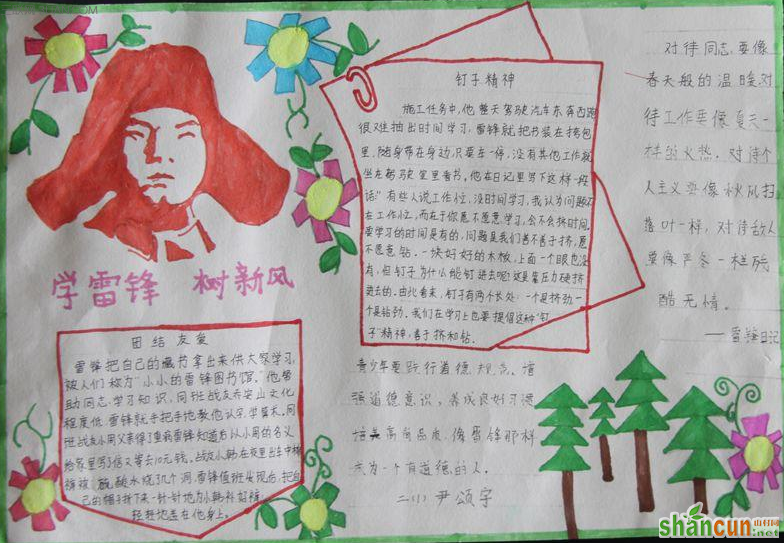 学雷锋 树新风
团结友爱
雷锋把自己的藏书拿出来供大家学习,
被人们称为“小小的雷锋图书馆。”他帮
助同志学习知识,同班战友乔安山文化
程度低,雷锋就手把手地教他认字,学算术。同
班战友小周父亲得了重病雷锋知道后以小周的名义
给家里写了信又寄去10元钱。战友小韩在夜里出车中棉
裤被 硫酸水烧了几个洞,雷锋值班发现后,把自
己的帽子拆下来一针一针地为小韩补好裤
轻轻地盖在他身上。
钉子精神
施工任务中,他整天驾驶汽车东奔西跑
很难抽出时间学习,雷锋就把书装在挎包
里,随身带在身边,只要车一停,没有其他工作就
坐在驾驶室里看书,他在日记里写下这样一段
话“有些人说工作忙,没时间学习,我认为问题不
在工作忙,而在于你愿不愿意学习,会不会挤时间。
要学习的时间是有的,问题是我们善不善于挤,愿
不愿意钻。一块好好的木板,上面一个眼也没
有,但钉子为什么能钉进去呢?这是靠压力硬挤
进去的。由此看来,钉子有两个长处:一个是挤劲,一
个是钻劲。我们在学习上也要提倡这种“钉
子”精神,善于挤和钻。
对待同志要像
春天般的温暖对
待工作要像夏天一
样的火热。对待个
人主义要像秋风扫
落叶一样,对待敌人
要像严冬一样残
酷无情。
——雷锋日记
青少年要践行道德规范。增
强道德意识,养成良好习惯
培美高尚品质,像雷锋那样
成为一个有道德的人。
二(1) 尹颂宇
shancun 山村网
.net